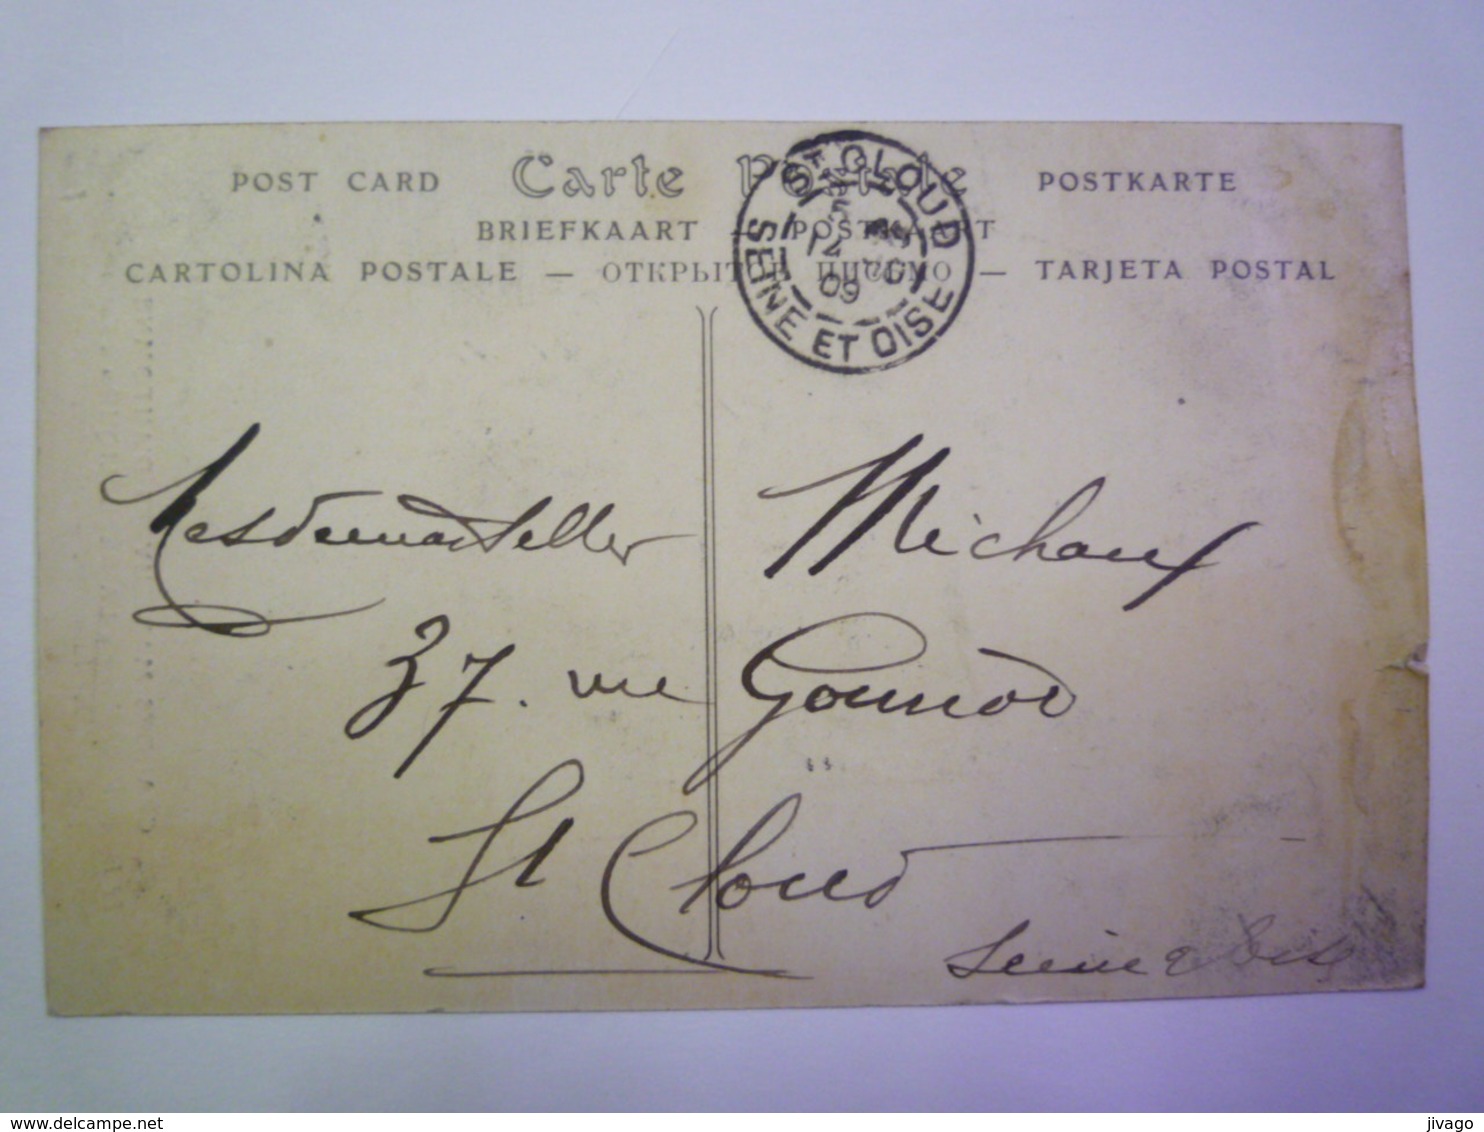 POST CARD Carte Postale POSTKARTE
BRIEFKAART — POSTKAART
CARTOLINA POSTALE — ОТКРЫТОЕ ПИСЬМО — TARJETA POSTAL
ST CLOUD
09
SEINE ET OISE
Mesdemoiselles Michaux
37. rue Gounod
St Cloud
Seine & Oise
delcampe.net
jivago